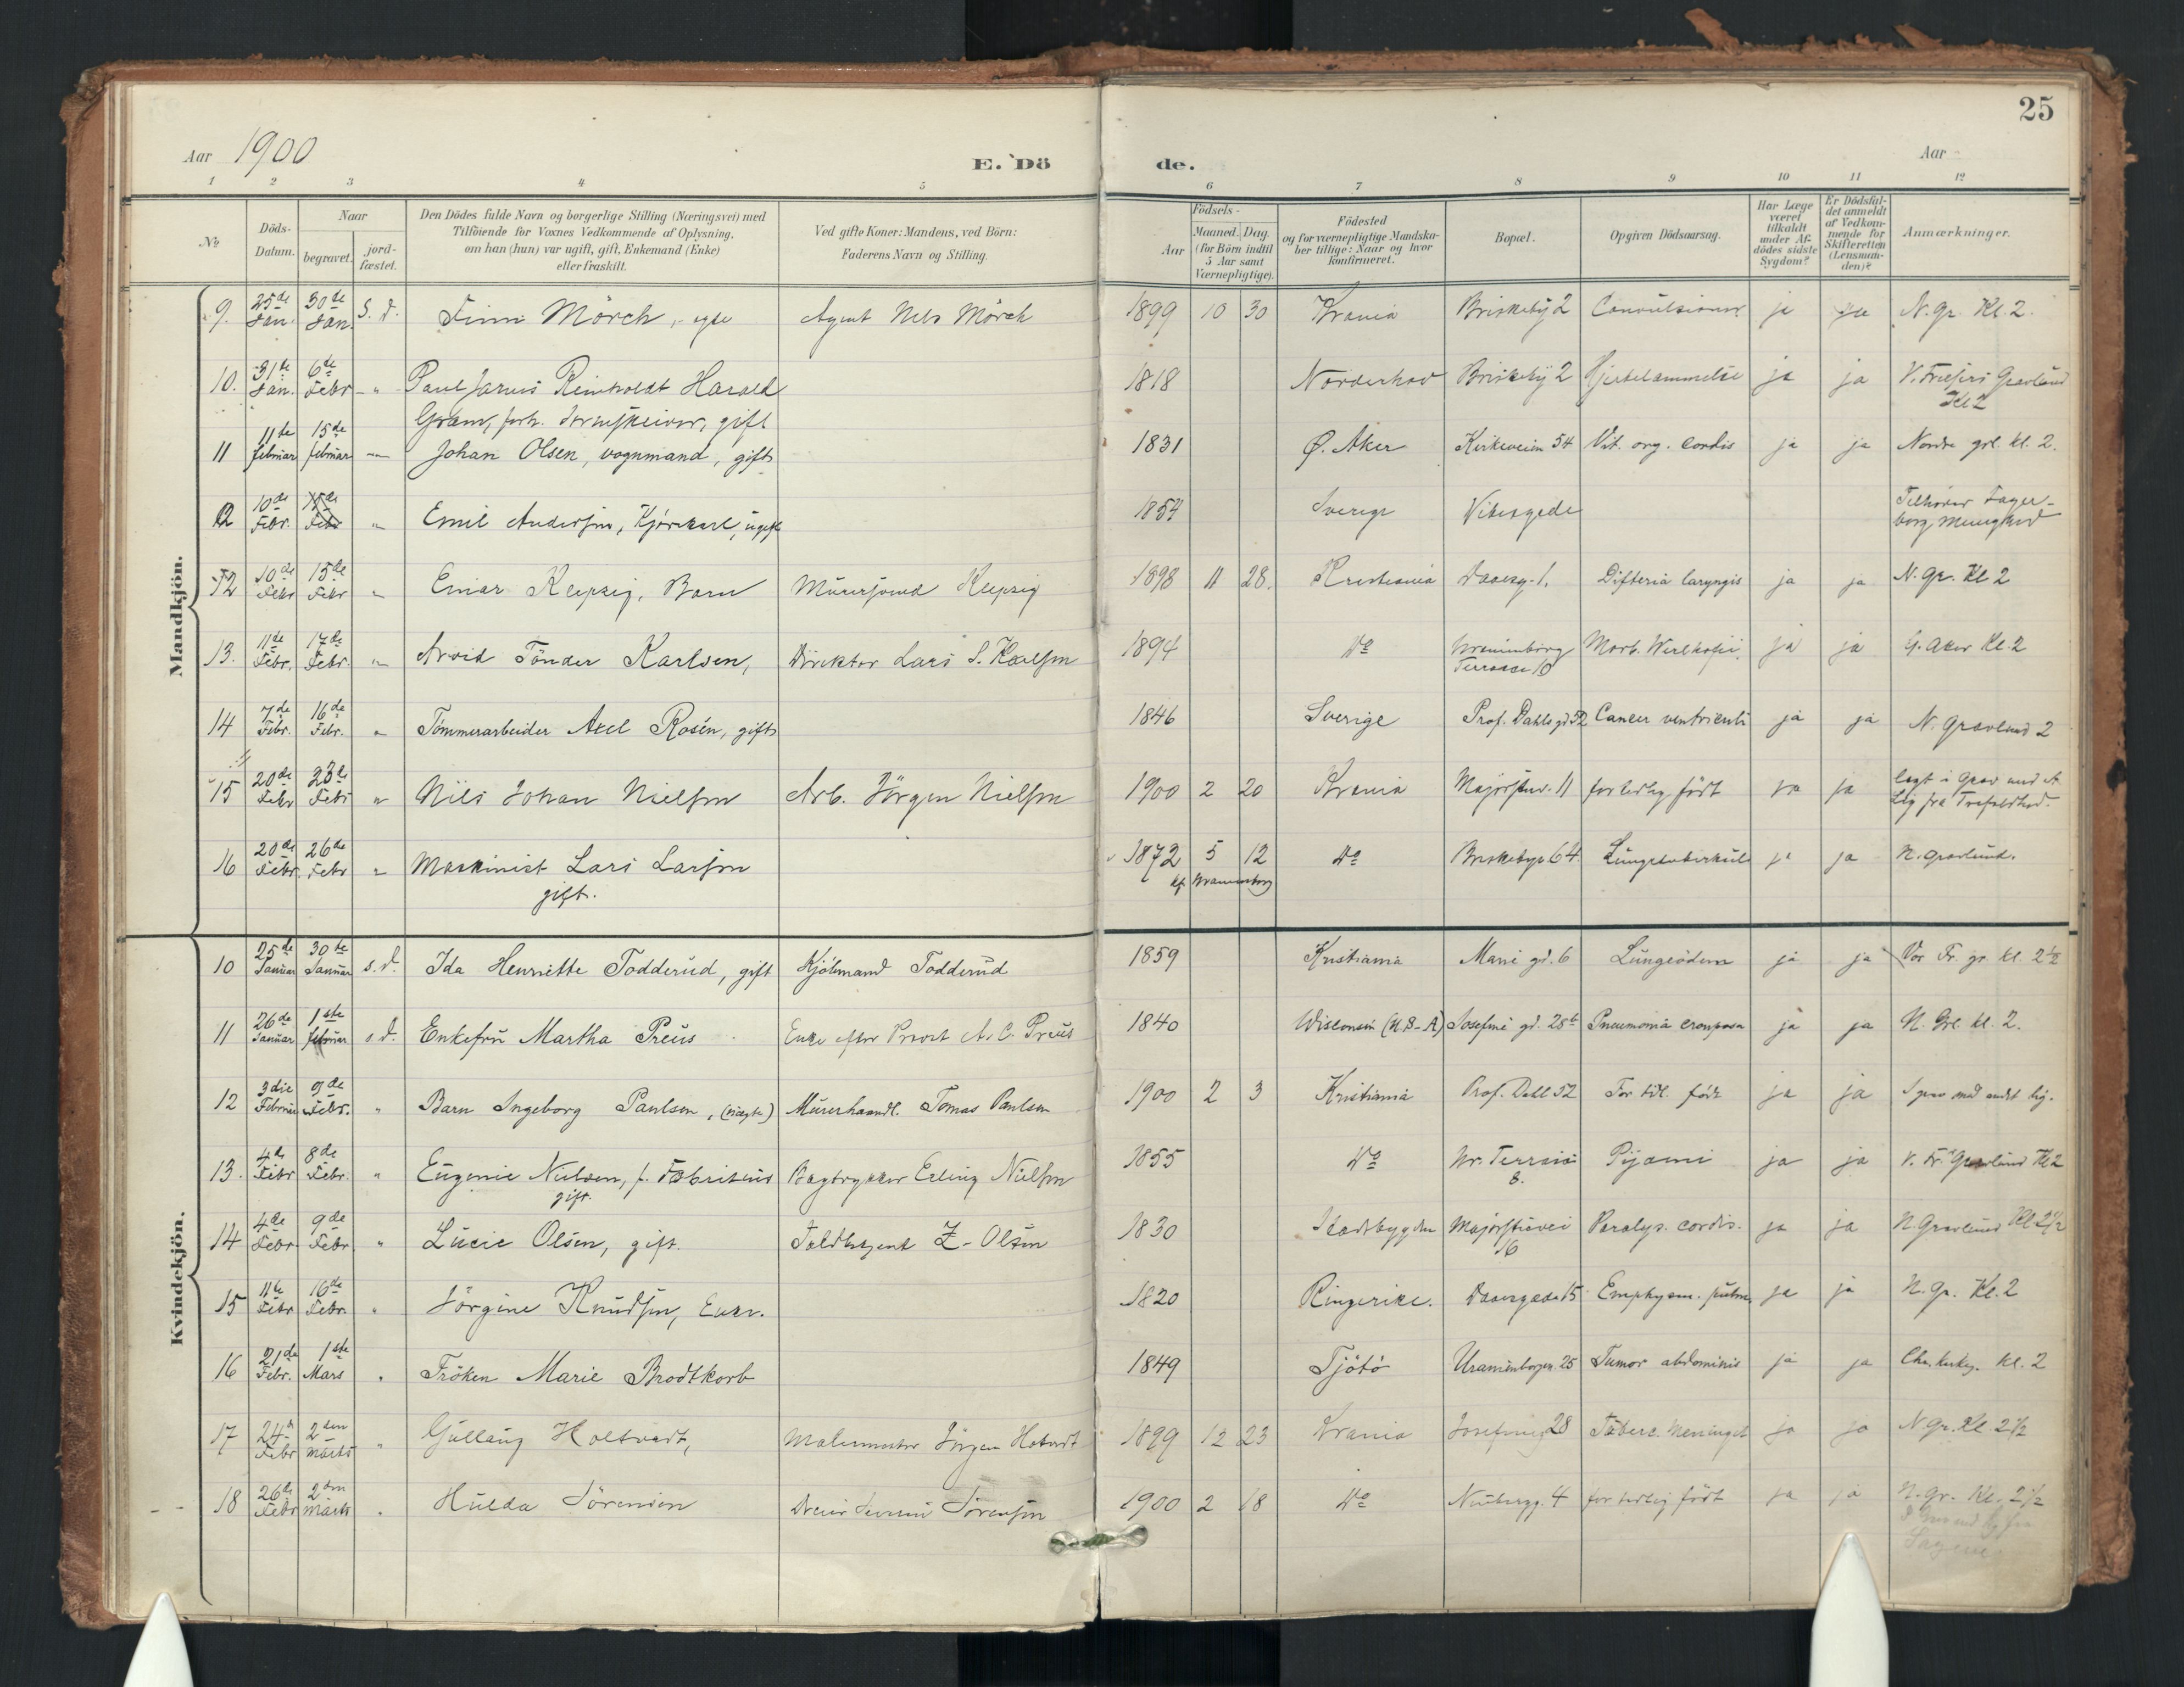 25
Aar 1900
E. Dö
de.
Aar
1 2 3 4 5 6 7 8 9 10 11 12
No
Döds-Datum.
Naar
begravet.
jord-fæstet.
Den Dödes fulde Navn og borgerlige Stilling (Næringsvei) med
Tilföiende for Voxnes Vedkommende af Oplysning,
om han (hun) var ugift, gift, Enkemand (Enke)
eller fraskilt.
Ved gifte Koner: Mandens, ved Börn:
Faderens Navn og Stilling.
Födsels-
Aar
Maaned. Dag.
(for Börn indtil
5 Aar samt
Værnepligtige).
Födested
og for værnepligtige Mandska-
ber tillige: Naar og hvor
konfirmeret.
Bopæl.
Opgiven Dödsaarsag.
Har Læge
været
tilkaldt
under Af-
dödes sidste
Sygdom?
Er Dödsfal-
det anmeldt
af Vedkom-
mende for
Skifteretten
(Lensman-
den)?
Anmærkninger.
Mandkjön.
9. 25de Jan. 30te Jan. S. d. Finn Mörch, Agent Nils Mörch 1899 10 30 Krania Briskeby 2 Convulsioner ja ja N. Gr. Kl. 2.
10. 31te Jan. 6de Febr - " Paul Reinholdt Harald 1818 Norderhov Briskeby 2 Hjertelammelse ja ja V. Frelsers Gravlund
Gram, forh. gift Kl 2
11 11te februar 15de februar Johan Olsen, vognmand, gift 1831 Ø. Aker Kirkeveien 54 Vit. org. cordis ja ja Nordre grl. kl. 2.
12 10de Febr. 15de Febr " Emil Andersen, Kjörekarl, ugift 1854 Sverige Vibesgade Tilhörer Fager-
borg Menighed
12 10de Febr 15de Febr " Einar Klepzig, Barn Murersvend Klepzig 1898 11 28. Kristiania Daasg. 1. Difteria laryngis ja ja N. Gr. Kl 2
13. 11te Febr. 17de Febr. " Arvid Tönder Karlsen, Direktör Lars S. Karlsen 1894 Do Uranienborg Morb. Werlhofii ja ja V. Aker Kl. 2
Terrasse 10
14 7de Febr. 16de Febr. " Tömmerarbeider Axel Rosén, gift 1846 Sverige Prof. Dahls gd 52 Cancer ventriculi ja ja N. Gravlund 2
15 20de Febr 23de Febr " Nils Johan Nielsen Arb. Jörgen Nielsen 1900 2 20 Krania Majorstuv. 11 for tidlig födt ja ja lagt i Grav med et
Lig fra Trefoldhed.
16 20de Febr. 26de Febr " Maskinist Lars Larsen 1872 5 12 Do Briskebyv. 64 Lungetuberkul. ja ja N. Gravlund.
gift. kf. Uranienborg
Kvindekjön.
10 25de Januar 30te Januar s. d. Ida Henriette Todderud, gift Kjölmand Todderud 1859 Kristiania Marie gd. 6 Lungeödem ja ja Vor Fr. gr. kl. 2 1/2
11 26de Januar 1ste februar s. d. Enkefru Martha Preus Enke efter Provst A. C. Preus 1840 Wisconsin (U.S.A) Josefine gd. 28b Pneumonia crouposa ja ja N. Grl. kl. 2.
12 3die Februar 9de Febr. " Barn Ingeborg Paulsen, (uægte) Murerhaandl. Tomas Paulsen 1900 2 3 Kristiania Prof. Dahl 52 For tidl. födt ja ja I grav med andet lig.
13. 4de Febr 8de Febr. " Eugenie Nielsen, f. Fabritius Bogtrykker Erling Nielsen 1855 Do Ur. Terrasse Pyæmi ja ja V. Fr. Gravlund Kl 2
gift. 8.
14 4de Febr 9de Febr " Lucie Olsen, gift. Toldbetjent Z. Olsen 1830 Stadsbygden Majorstuvei Paralys. cordis. ja ja N. Gravlund Kl 2 1/2
16
15 11te Febr 16de Febr. " Jörgine Knudsen, Enke. 1820 Ringerike. Daasgade 15 Emphysem. pulm. ja ja N. Gr. Kl. 2
16 21de Febr. 1ste Mars " Fröken Marie Brodtkorb 1849 Tjötö Uranienborgv. 25 Tumor abdominis ja ja kl. 2
17 24de Febr 2den marts " Gullaug Holtvedt, Malermester Jörgen Holtvedt 1899 12 23 Krania Josefineg 28 Tuberc. Meningit ja ja N Gr. Kl. 2 1/2
18 26de Febr 2den marts " Hulda Sörensen Dreier Sörensen 1900 2 18 Do 4 for tidlig födt ja ja N. Gr. Kl. 2 1/2
Sagene